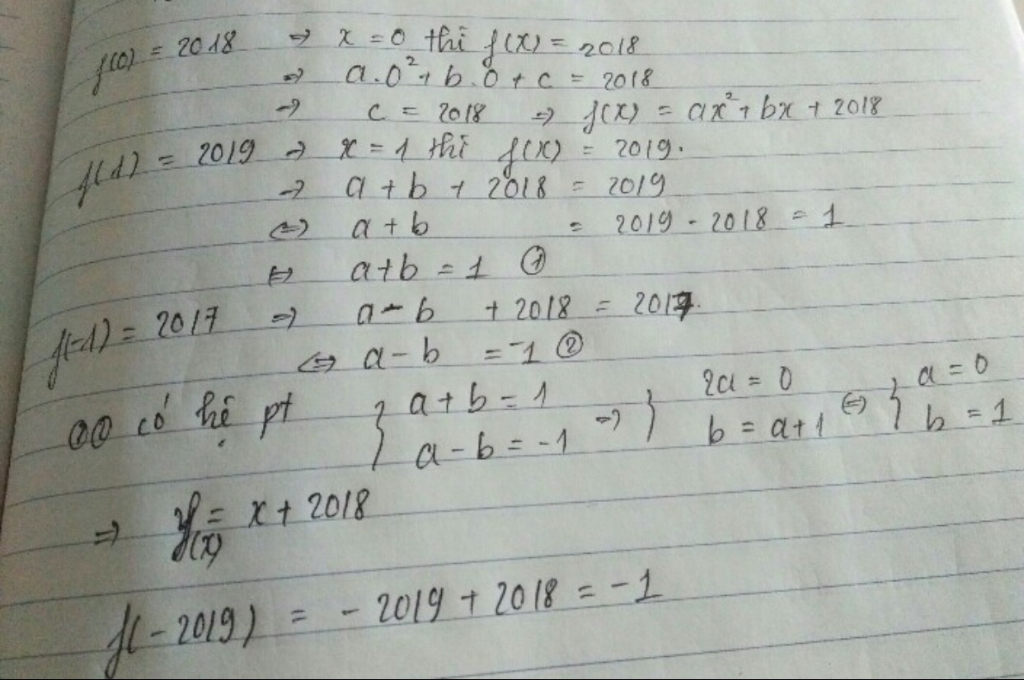 f(0) = 2018 => x = 0 thì f(x) = 2018
=> a.0² + b.0 + c = 2018
=> c = 2018 => f(x) = ax² + bx + 2018
f(1) = 2019 => x = 1 thì f(x) = 2019.
=> a + b + 2018 = 2019
<=> a + b = 2019 - 2018 = 1
<=> a+b = 1 ①
f(-1) = 2017 => a - b + 2018 = 2017.
<=> a - b = -1 ②
①② có hệ pt { a + b = 1 => { 2a = 0 <=> { a = 0
a - b = -1 b = a+1 b = 1
=> y = x + 2018
f(x)
f(-2019) = - 2019 + 2018 = -1